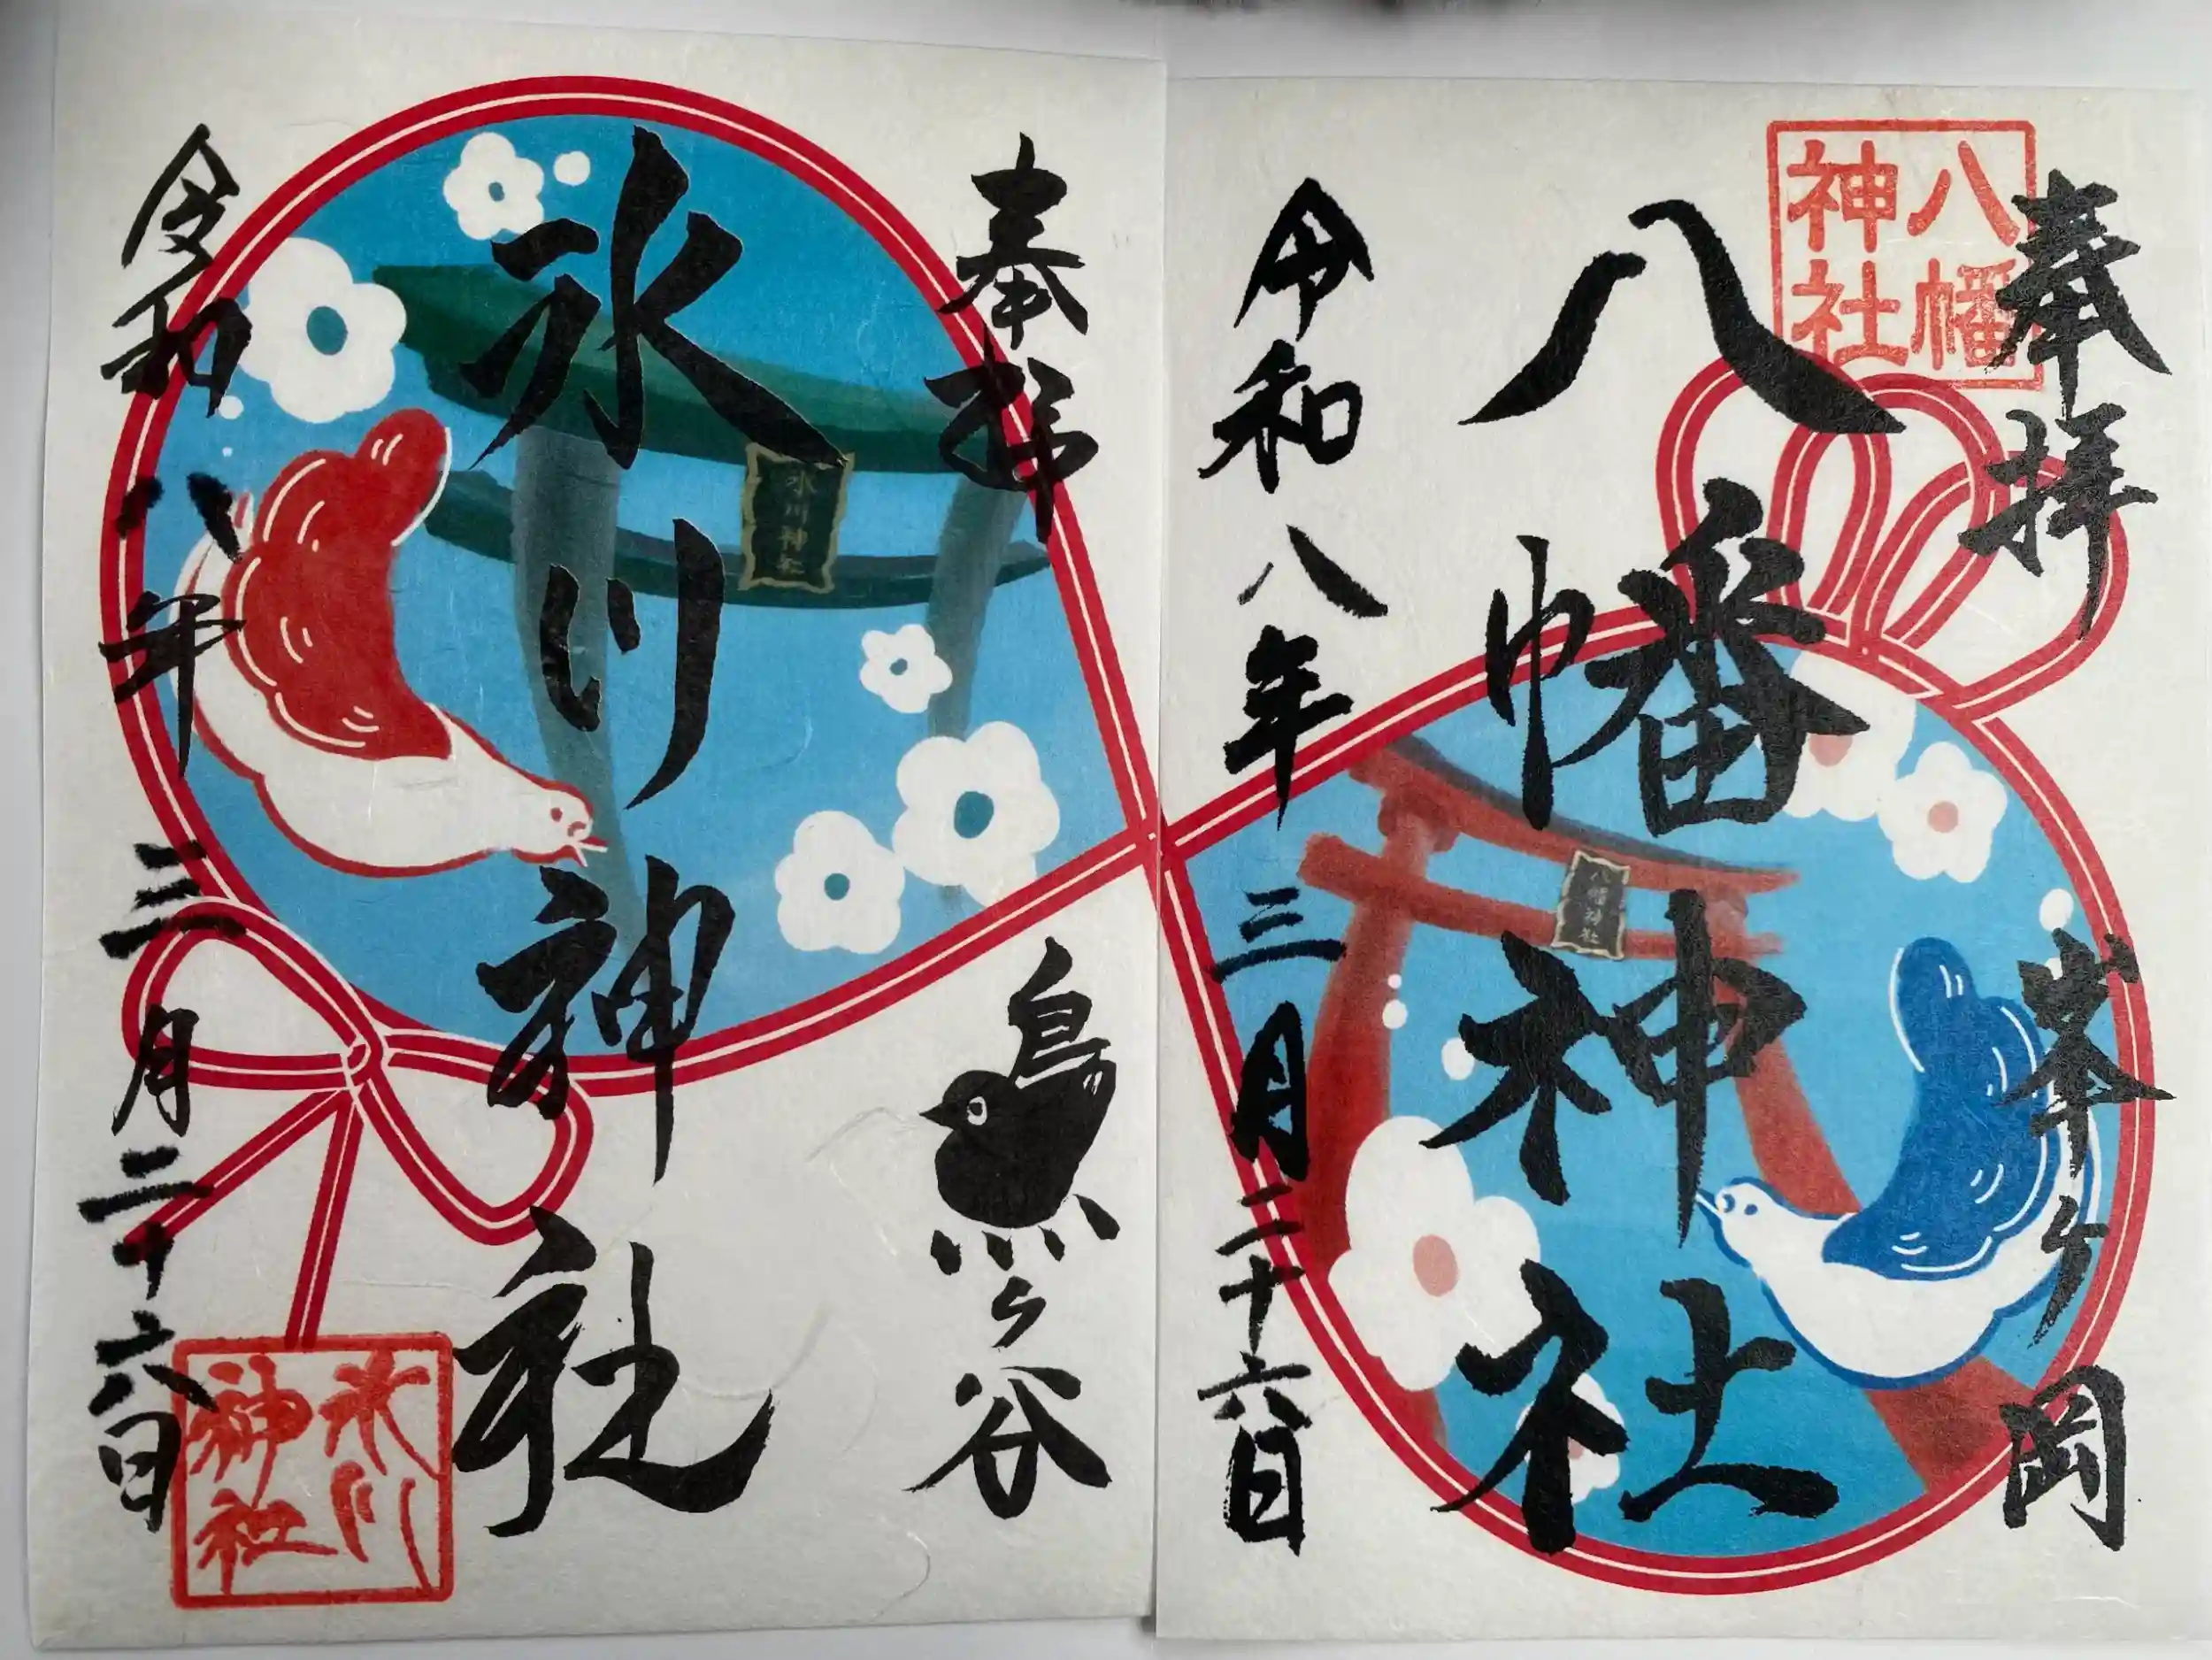 奉拝
峯ヶ岡
八幡
神社
八幡神社
八幡神社
令和八年三月二十六日
奉拝
鳩ヶ谷
氷川神社
氷川神社
令和八年三月二十六日
氷川
神社